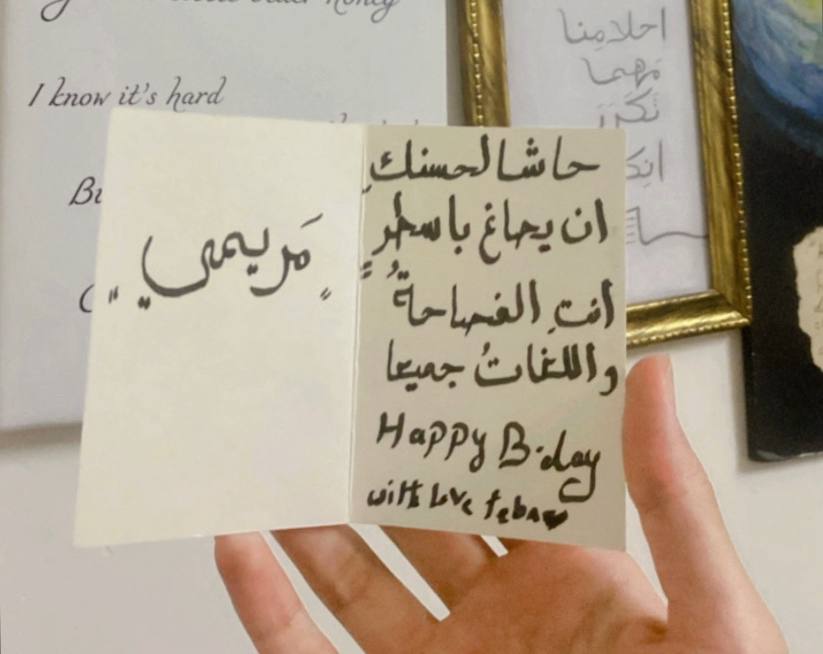 I know it's hard
احلامِنا
مَهما
تَكَررَ
"مَريمي"
حاشا لحسنكِ
ان يصاغ باسطُرٍ
انتِ الفصاحةُ
واللغاتُ جميعا
Happy B.day
with love teba